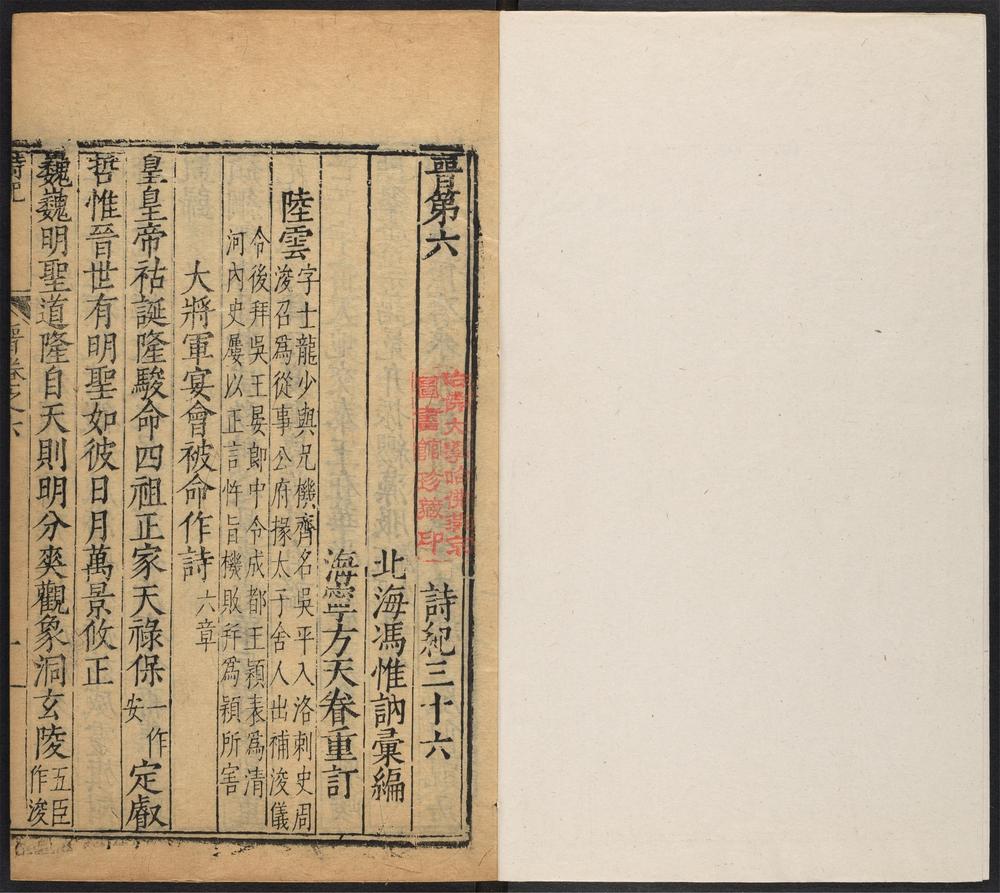 晉第六 詩紀三十六
哈佛大學哈佛燕京
圖書館珍藏印
北海馮惟訥彙編
海寧方天眷重訂
陸雲 字士龍少與兄機齊名吳平入洛刺史周
浚召爲從事公府掾太子舍人出補浚儀
令後拜吳王晏郎中令成都王穎表爲清
河內史屢以正言忤旨機敗并爲穎所害
大將軍宴會被命作詩 六章
皇皇帝祜誕隆駿命四祖正家天祿保 一作安 定叡
哲惟晉世有明聖如彼日月萬景攸正
巍巍明聖道隆自天則明分爽觀象洞玄陵 五臣作浚
詩紀 晉卷之六 一